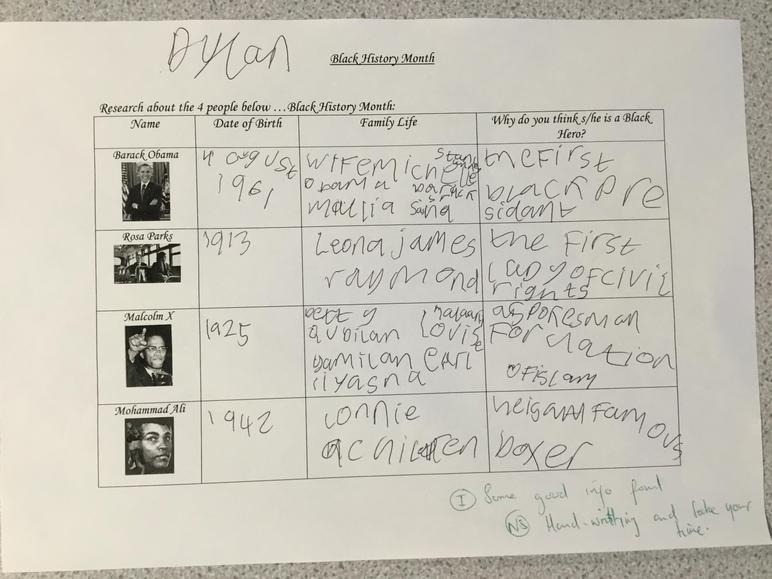 Dylan
Black History Month
Research about the 4 people below …Black History Month:
Name
Date of Birth
Family Life
Why do you think s/he is a Black
Hero?
Barack Obama
4 august
1961
wife michelle
obama barack
mallia
the first
black pre
sidant
Rosa Parks
1913
Leona james
raymond
the first
lady of civil
rights
Malcolm X
1925
betty
lovise
earl
a spokesman
for nation
of islam
Mohammad Ali
1942
Lonnie
famous
boxer
I Some good info found
NS Hand-writting and take your
time.